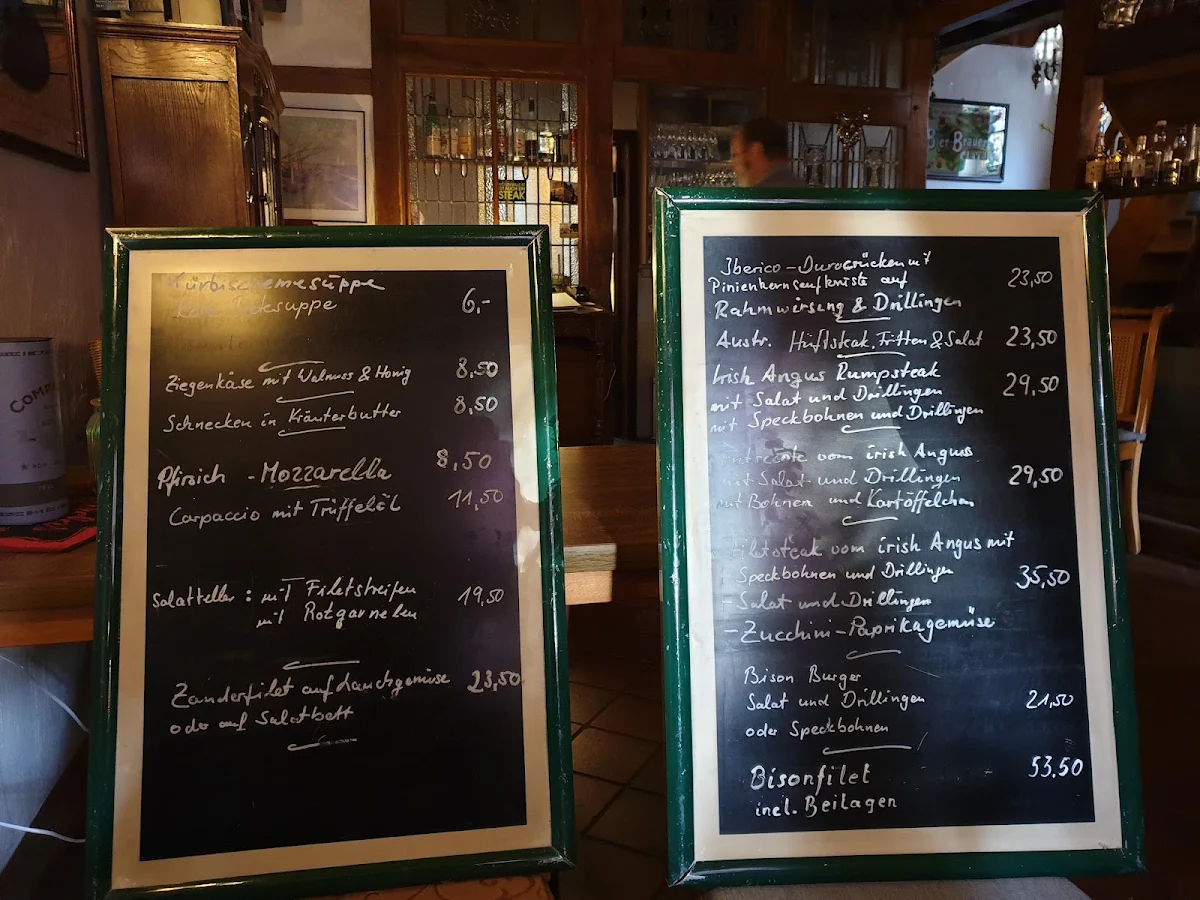 Kürbiscremesuppe
suppe 6,-
Ziegenkäse mit Walnuss & Honig 8,50
Schnecken in Kräuterbutter 8,50
Pfirsich - Mozzarella 8,50
Carpaccio mit Trüffelöl 11,50
Salatteller : mit Filetstreifen 19,50
mit Rotgarnelen
Zanderfilet auf Lauchgemüse 23,50
oder auf Salatbett
Iberico - Durocrücken mit 23,50
Pinienkernsenfkruste auf
Rahmwirsing & Drillingen
Austr. Hüftsteak, Fritten & Salat 23,50
Irish Angus Rumpsteak
mit Salat und Drillingen 29,50
mit Speckbohnen und Drillingen
Entrecote vom irish Angus
mit Salat und Drillingen 29,50
mit Bohnen und Kartöffelchen
Filetsteak vom irish Angus mit
- Speckbohnen und Drillingen 35,50
- Salat und Drillingen
- Zucchini - Paprikagemüse
Bison Burger
Salat und Drillingen 21,50
oder Speckbohnen
Bisonfilet 53,50
incl. Beilagen
STEAK
COMP